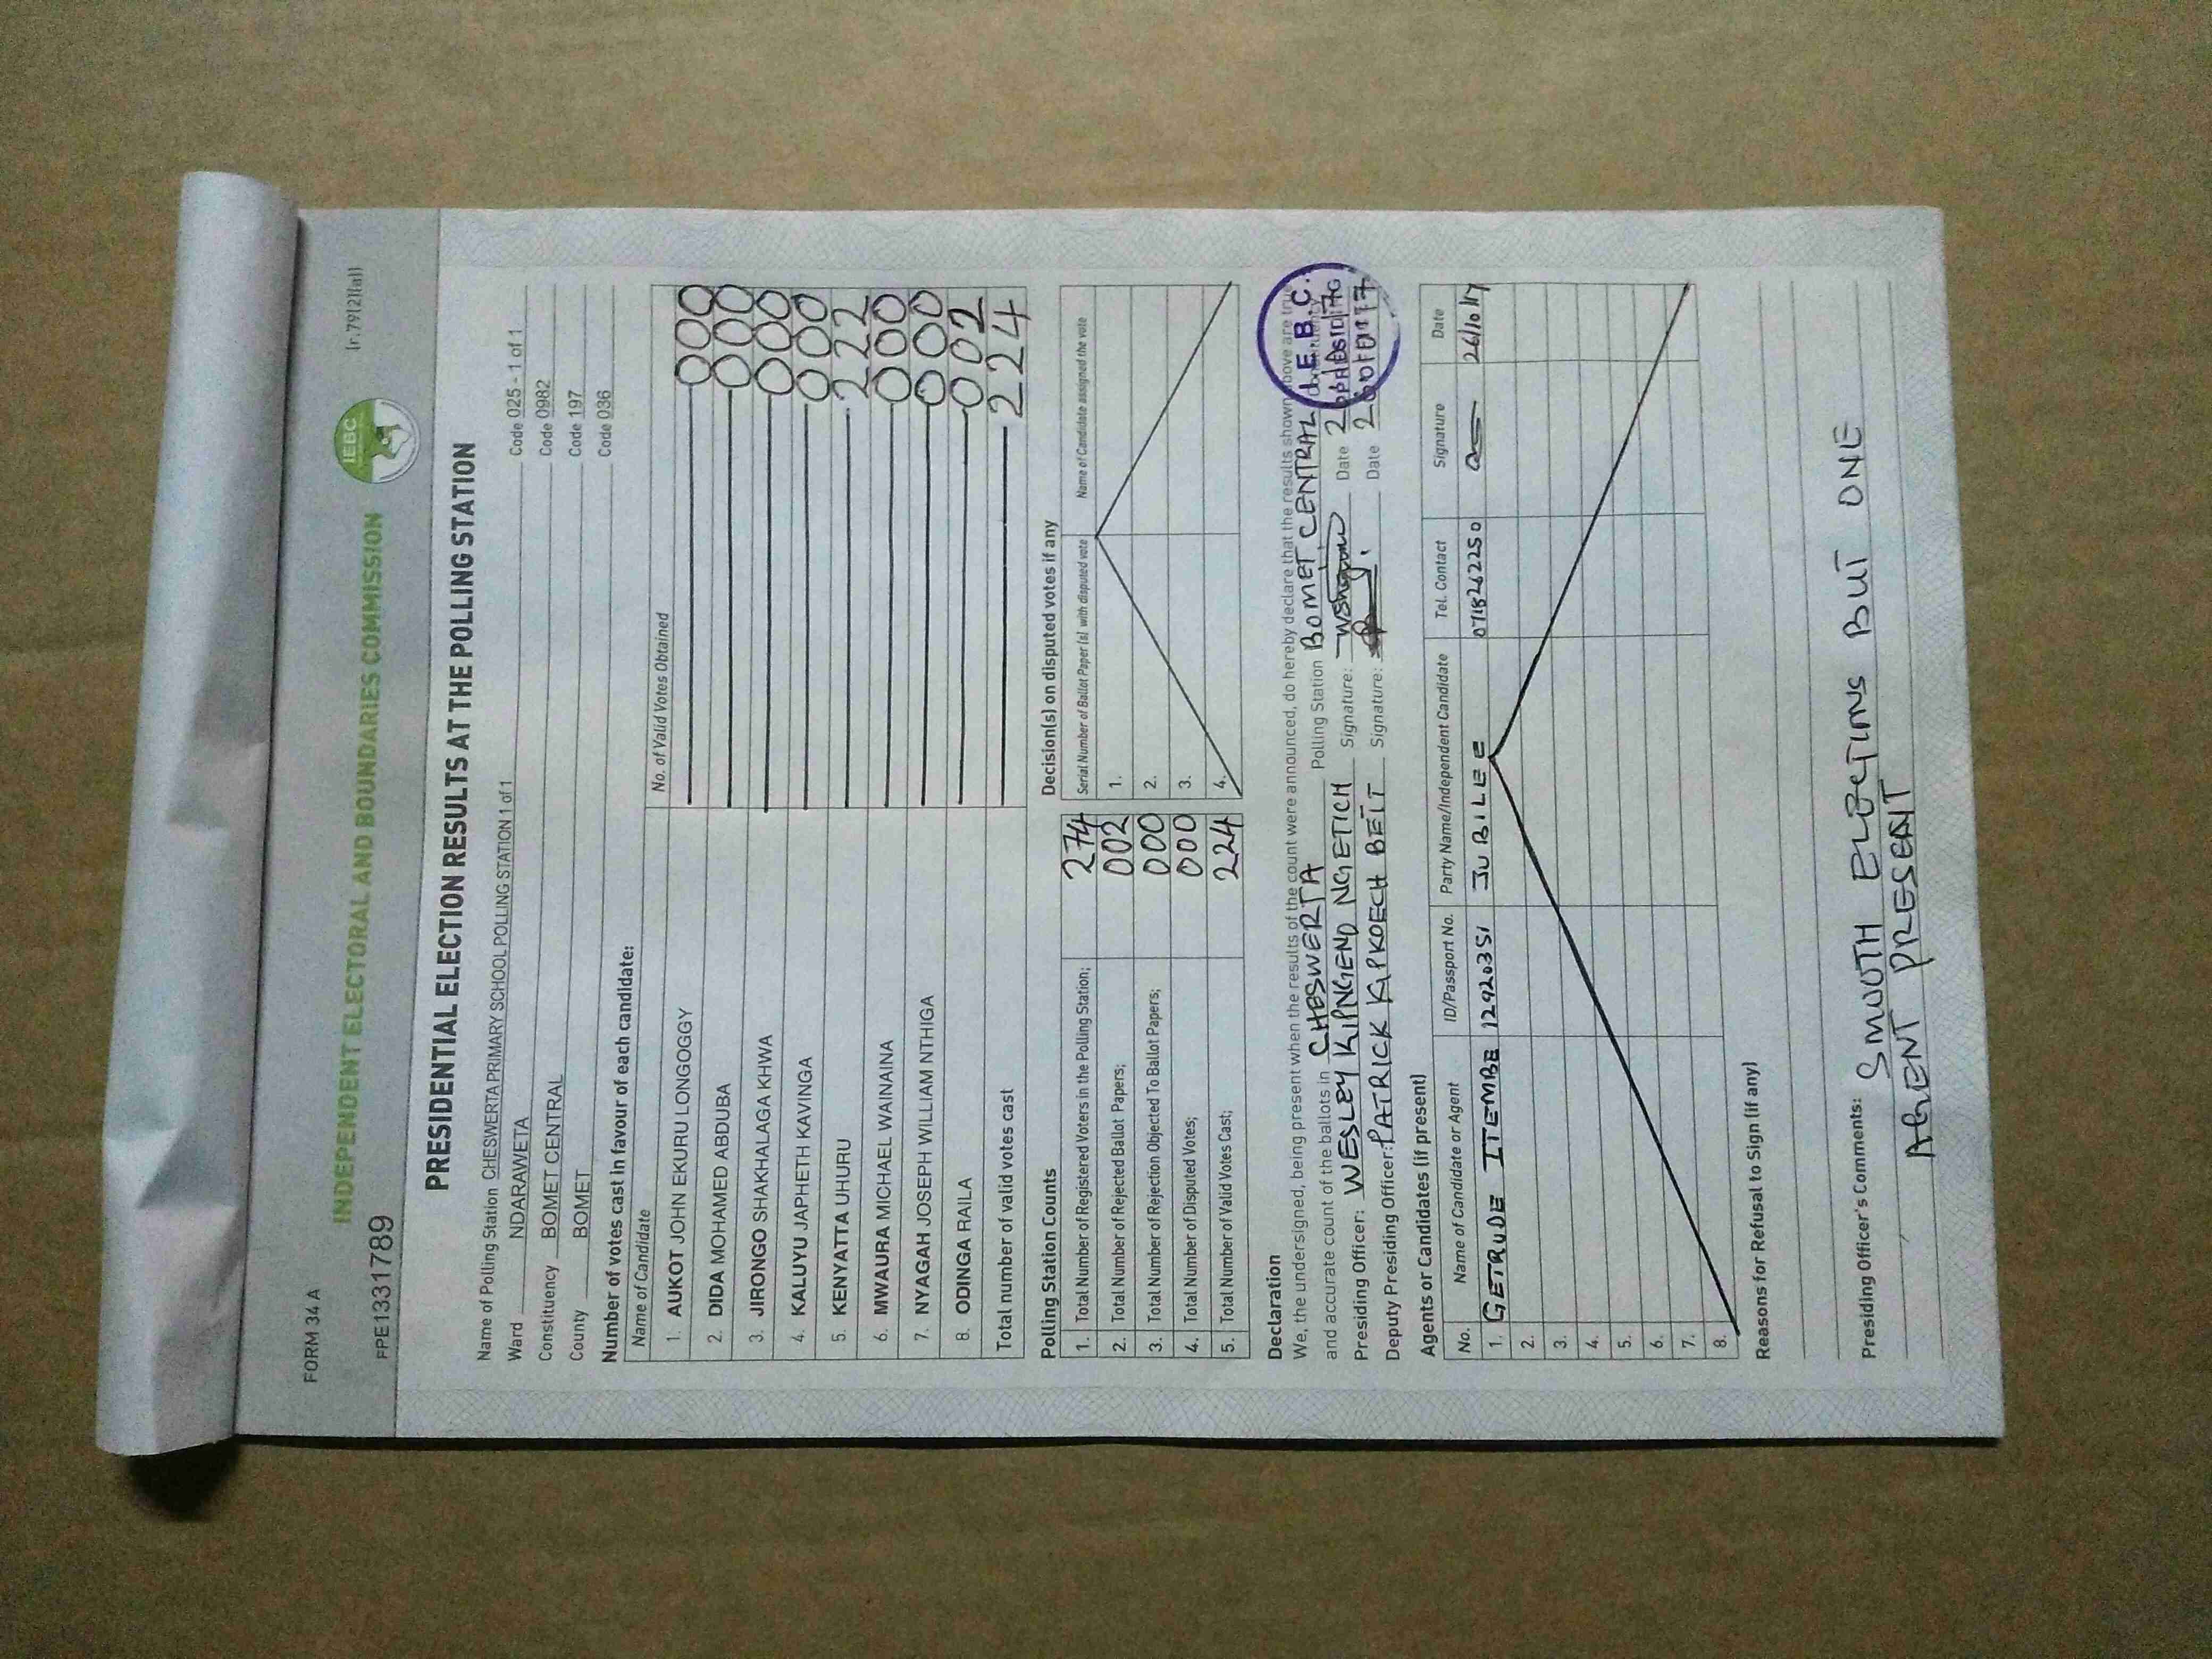 FORM 34 A
[r.79(2)(a)]
INDEPENDENT ELECTORAL AND BOUNDARIES COMMISSION
IEBC
FPE1331789
PRESIDENTIAL ELECTION RESULTS AT THE POLLING STATION
Name of Polling Station CHESWERTA PRIMARY SCHOOL POLLING STATION 1 of 1 Code 025 - 1 of 1
Ward NDARAWETA Code 0982
Constituency BOMET CENTRAL Code 197
County BOMET Code 036
Number of votes cast in favour of each candidate:
Name of Candidate No. of Valid Votes Obtained
1. AUKOT JOHN EKURU LONGOGGY 000
2. DIDA MOHAMED ABDUBA 000
3. JIRONGO SHAKHALAGA KHWA 000
4. KALUYU JAPHETH KAVINGA 000
5. KENYATTA UHURU 222
6. MWAURA MICHAEL WAINAINA 000
7. NYAGAH JOSEPH WILLIAM NTHIGA 000
8. ODINGA RAILA 002
Total number of valid votes cast 224
Polling Station Counts
1. Total Number of Registered Voters in the Polling Station; 274
2. Total Number of Rejected Ballot Papers; 002
3. Total Number of Rejection Objected To Ballot Papers; 000
4. Total Number of Disputed Votes; 000
5. Total Number of Valid Votes Cast; 224
Decision(s) on disputed votes if any
Serial Number of Ballot Paper (s) with disputed vote Name of Candidate assigned the vote
1.
2.
3.
4.
Declaration
We, the undersigned, being present when the results of the count were announced, do hereby declare that the results shown above are true
and accurate count of the ballots in CHESWERTA Polling Station BOMET CENTRAL
I.E.B.C.
Presiding Officer: WESLEY KIPNGENO NGETICH Signature: Date
Deputy Presiding Officer: PATRICK KIPKOECH BETT Signature: Date
Agents or Candidates (if present)
No. Name of Candidate or Agent ID/Passport No. Party Name/Independent Candidate Tel. Contact Signature Date
1. GETRUDE ITEMBE 12920351 JUBILEE 0718262250 26/10/17
2.
3.
4.
5.
6.
7.
8.
Reasons for Refusal to Sign (if any)
Presiding Officer's Comments: SMOOTH ELECTIONS BUT ONE
AGENT PRESENT